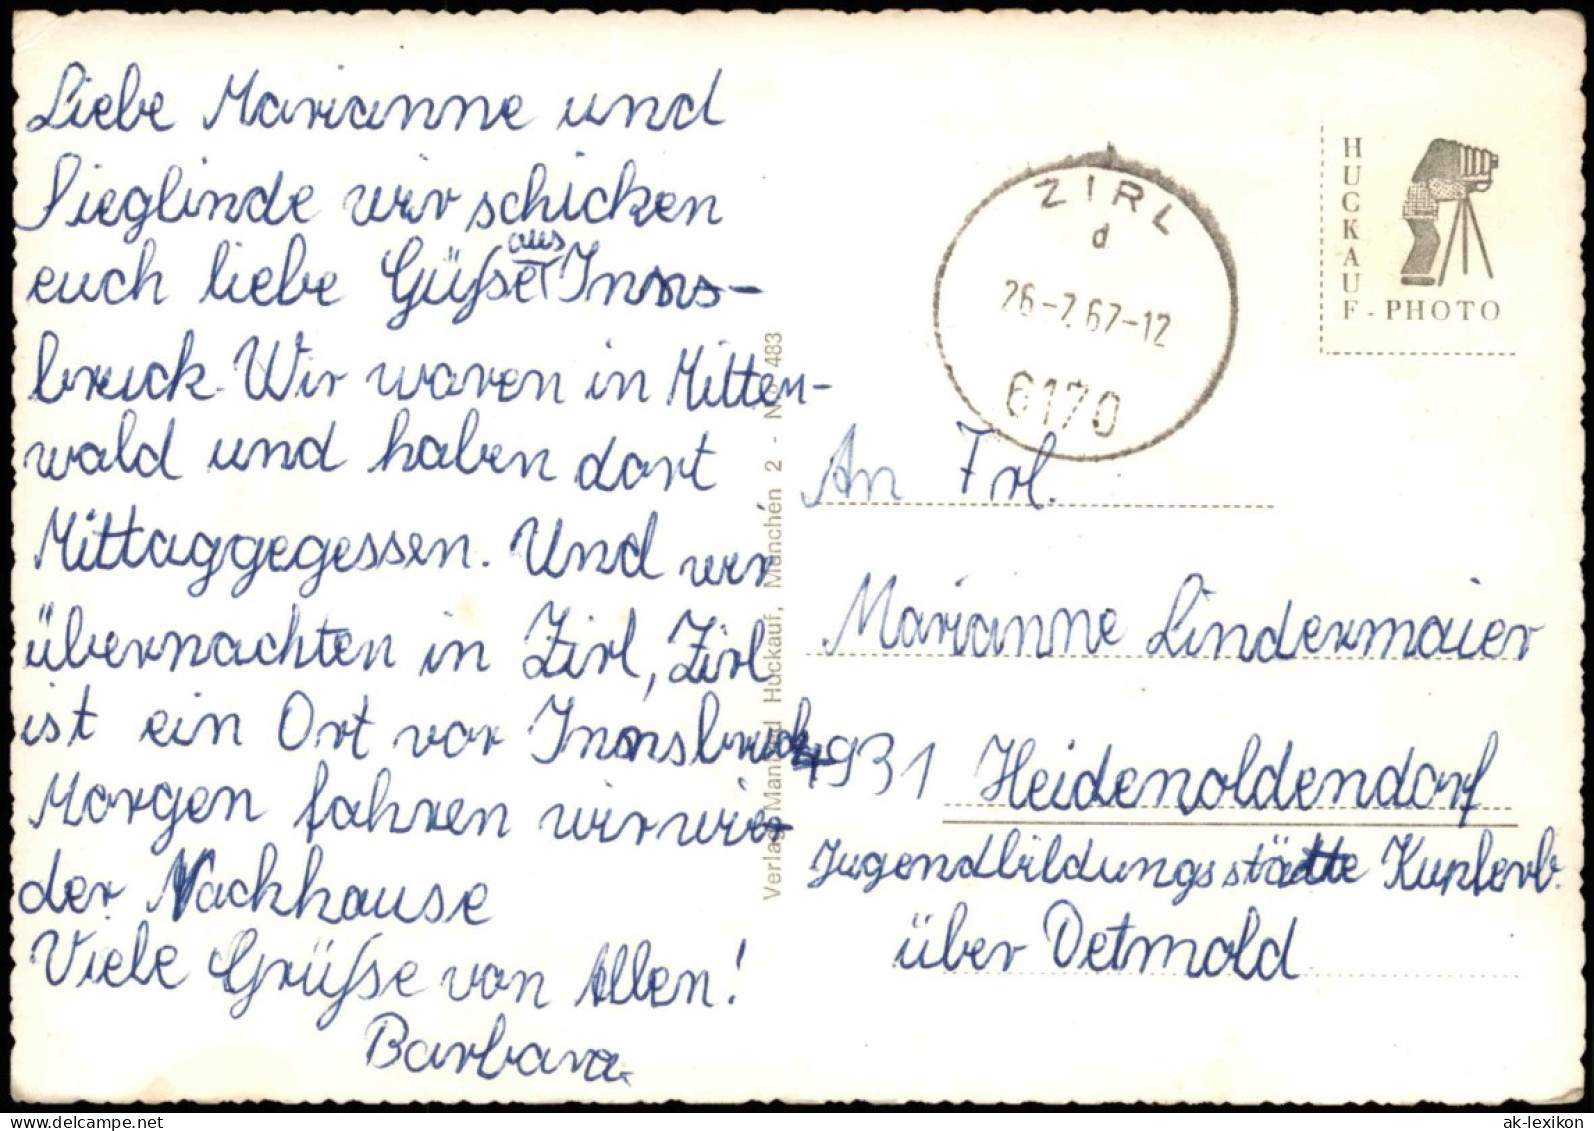 Liebe Marianne und
Sieglinde wir schicken
euch liebe Güße aus Inns-
bruck. Wir waren in Mitten-
wald und haben dort
Mittaggegessen. Und wir
übernachten in Zirl, Zirl
ist ein Ort vor Innsbruck
Morgen fahren wir wie-
der Nachhause
Viele Grüße von Allen!
Barbara
Verlag Manfred Huckauf, München 2 - No 483
ZIRL
d
26-7.67-12
6170
HUCKAUF - PHOTO
An Frl.
Marianne Lindermaier
4931 Heidenoldendorf
Jugendbildungsstätte
über Detmold
ak-lexikon